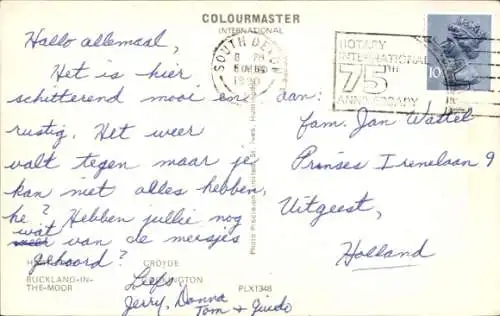 COLOURMASTER
INTERNATIONAL
SOUTH DEVON
ROTARY
INTERNATIONAL
75TH
ANNIVERSARY
10
Hallo allemaal,
Het is hier
schitterend mooi en
rustig. Het weer
valt tegen maar je
kan niet alles hebben,
he? Hebben jullie nog
wat van de meisjes
gehoord?
Liefs,
Jerry, Donna
Tom + Guido
aan:
fam. Jan Wattel
Prinses Irenelaan 9
Uitgeest,
Holland
CROYDE
BUCKLAND-IN-
THE-MOOR
PLX1348